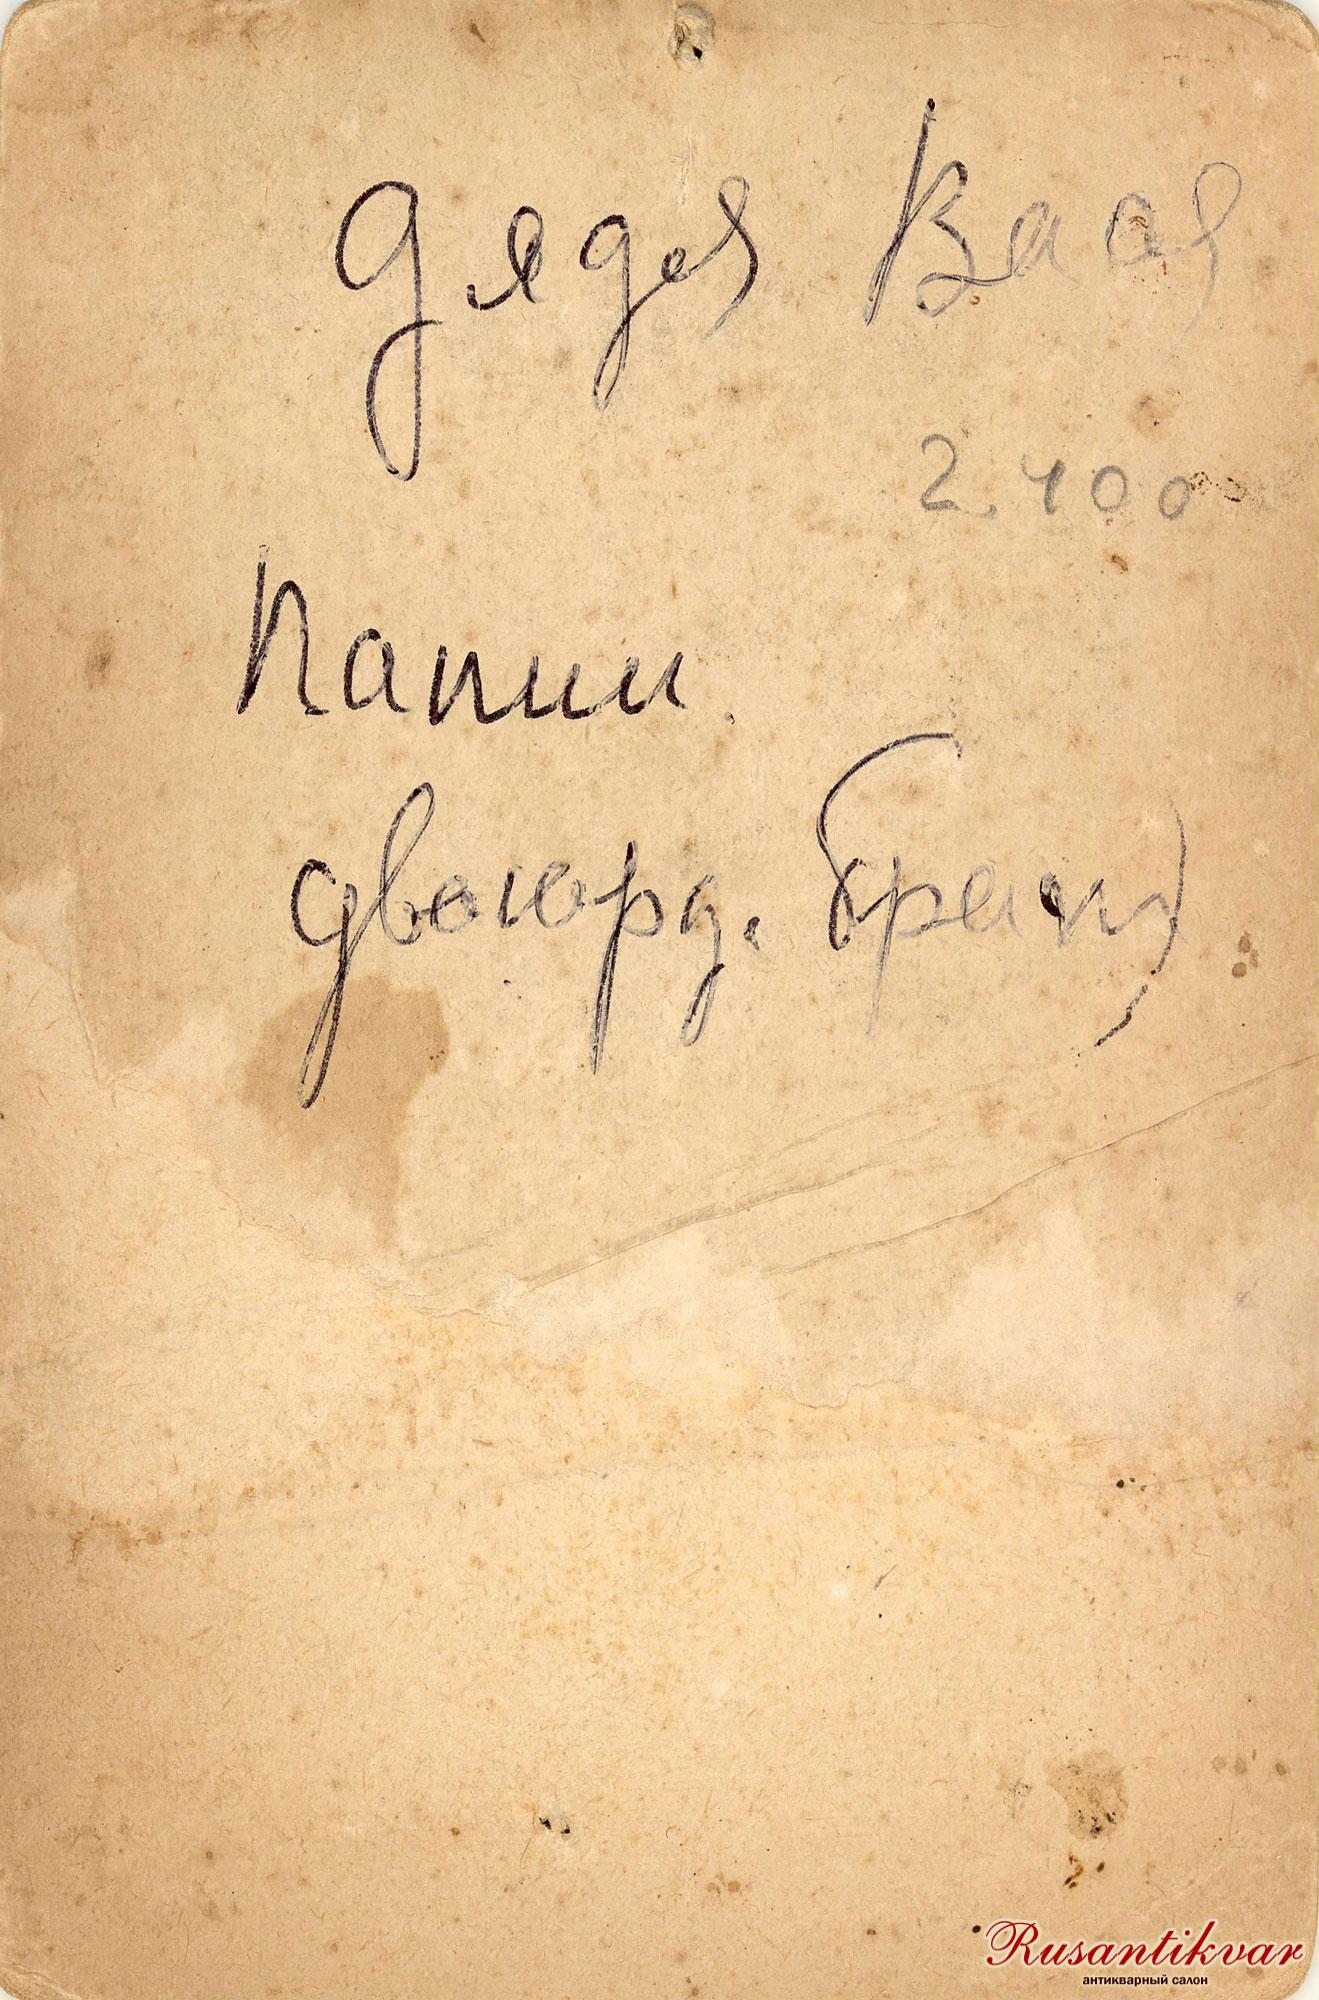 дядя Вася
2.400
папин.
двоюрд. брат)
Rusantikvar
антикварный салон